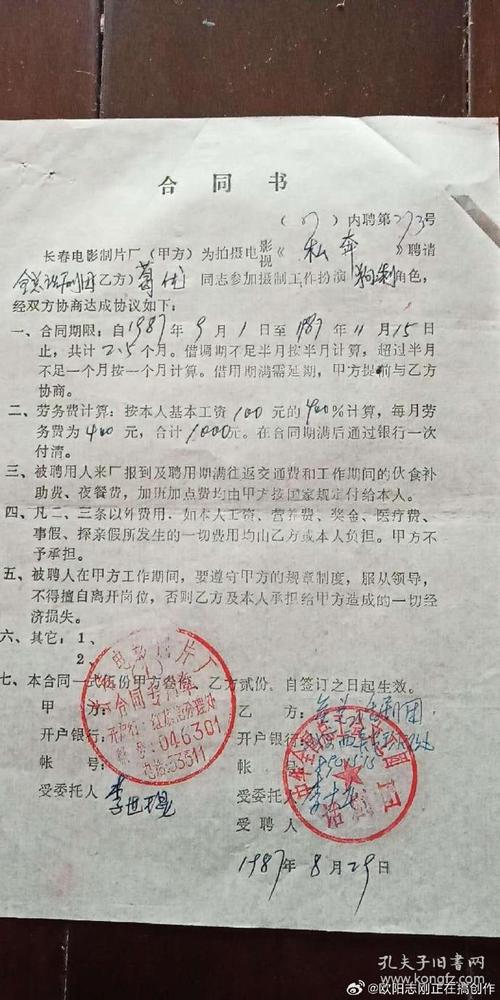 合同书
(87)内聘第273号
长春电影制片厂(甲方)为拍摄电影视《私奔》聘请
全总话剧团(乙方)葛优同志参加摄制工作扮演狗剩角色,
经双方协商达成协议如下:
一、合同期限:自1987年9月1日至1987年11月15日
止,共计2.5个月。借调期不足半月按半月计算,超过半月
不足一个月按一个月计算。借用期满需延期,甲方提前与乙方
协商。
二、劳务费计算:按本人基本工资100元的400%计算,每月劳
务费为400元,合计1000元。在合同期满后通过银行一次
付清。
三、被聘用人来厂报到及聘用期满往返交通费和工作期间的伙食补
助费、夜餐费,加班加点费均由甲方按国家规定付给本人。
四、凡二、三条以外费用,如本人工资、营养费、奖金、医疗费、
事假、探亲假所发生的一切费用均由乙方或本人负担。甲方不
予承担。
五、被聘人在甲方工作期间,要遵守甲方的规章制度,服从领导,
不得擅自离开岗位,否则乙方及本人承担给甲方造成的一切经
济损失。
六、其它:1、
2、
七、本合同一式伍份甲方叁份,乙方贰份,自签订之日起生效。
甲方:
开户银行:
帐号:
受委托人
电影制片厂
合同专用章
046301
电话:53311
乙方:全总话剧团
开户银行:
帐号:
受委托人
受聘人
1987年8月29日
孔夫子旧书网
@欧阳志刚正在搞创作